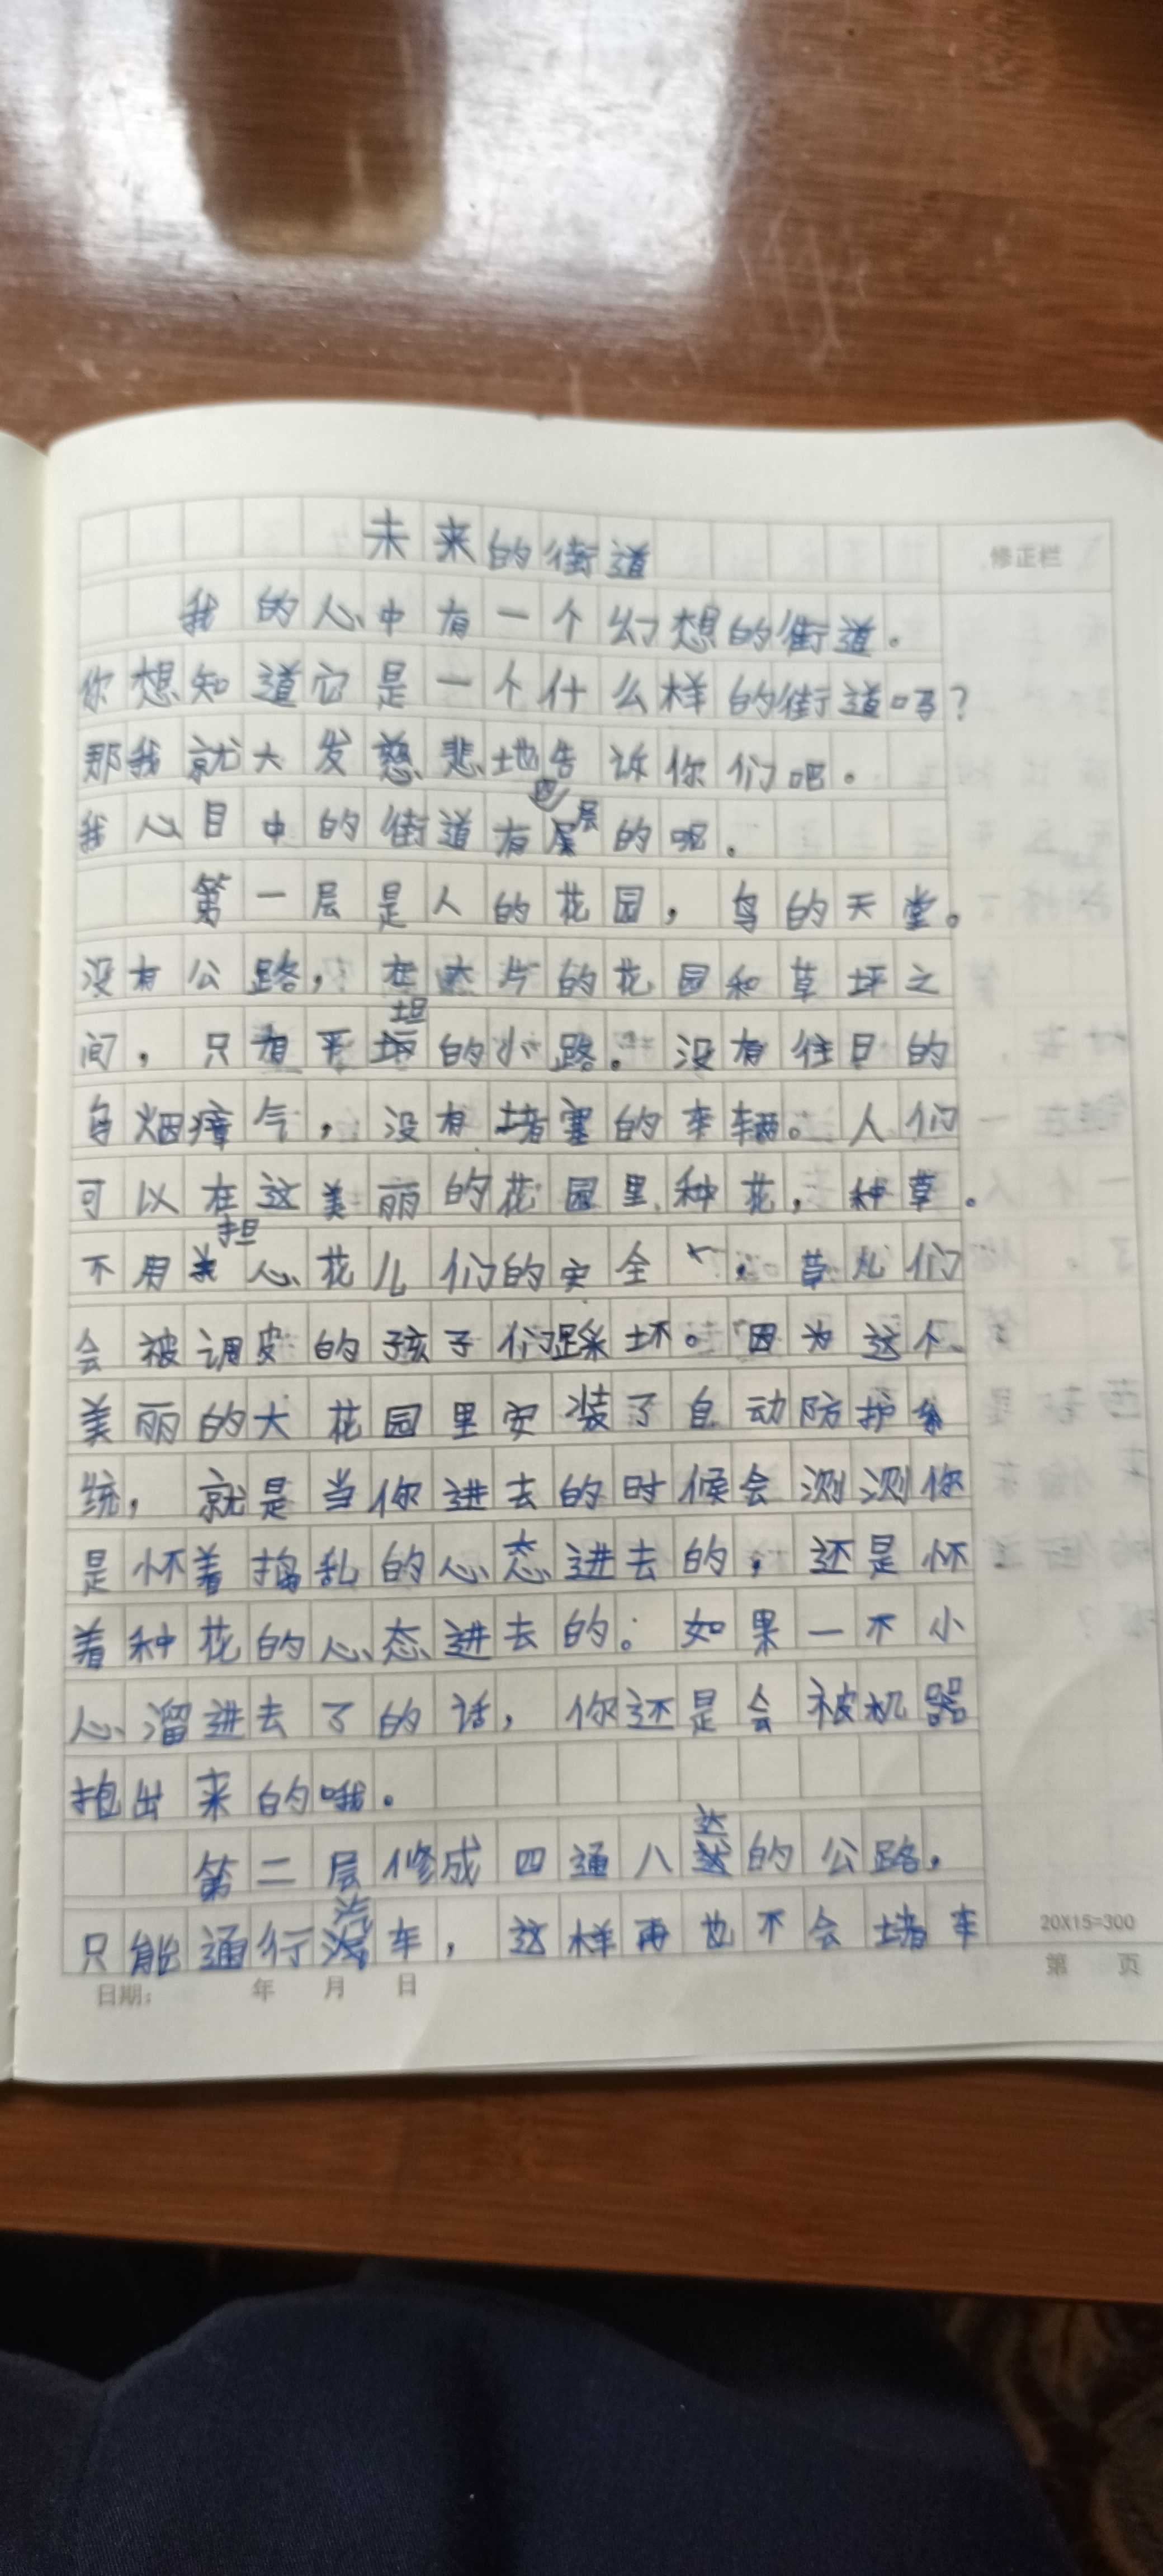 未来的街道
修正栏
我的心中有一个幻想的街道。
你想知道它是一个什么样的街道吗?
那我就大发慈悲地告诉你们吧。
我心目中的街道有四层的呢。
第一层是人的花园，鸟的天堂。
没有公路，在大片的花园和草坪之
间，只有平坦的小路。没有往日的
乌烟瘴气，没有堵塞的车辆。人们
可以在这美丽的花园里种花，种草。
不用担心花儿们的安全、草儿们
会被调皮的孩子们踩坏。因为这个
美丽的大花园里安装了自动防护系
统，就是当你进去的时候会测测你
是怀着捣乱的心态进去的，还是怀
着种花的心态进去的。如果一不小
心溜进去了的话，你还是会被机器
抱出来的哦。
第二层修成四通八达的公路，
只能通行汽车，这样再也不会堵车
20X15=300
日期: 年 月 日
第 页